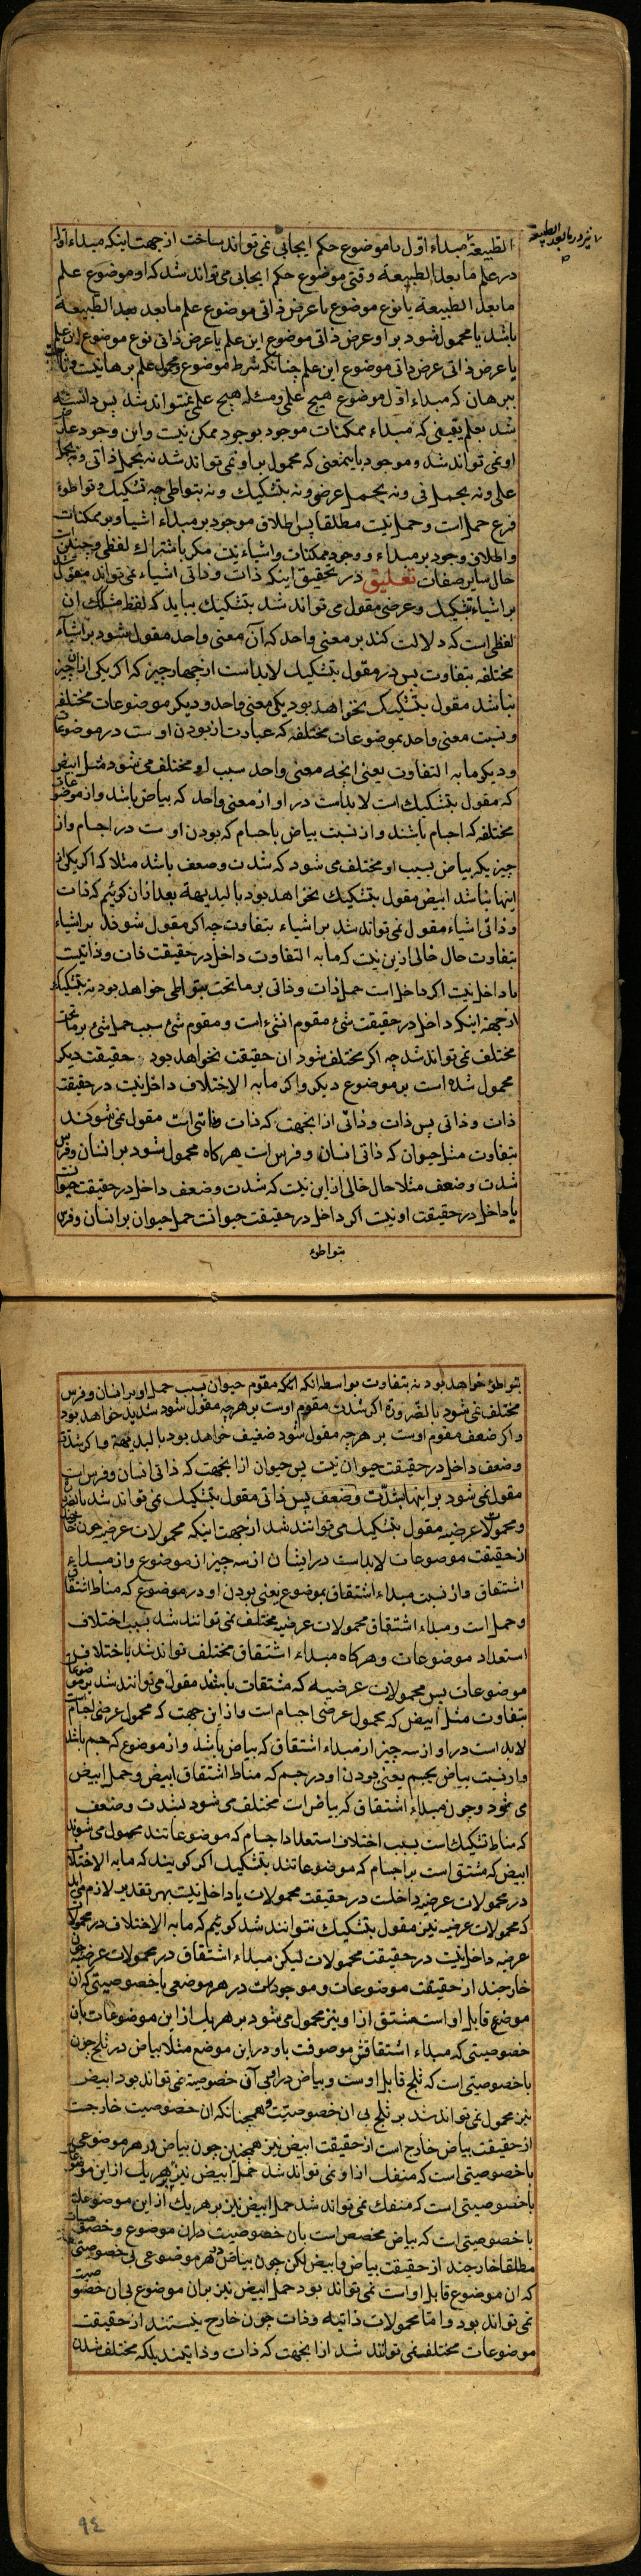 الطبیعة مبداء اول با موضوع حکم ایجابی نمی تواند ساخت از جهت اینکه مبداء اول
نیز در ما بعد الطبیعة
در علم ما بعد الطبیعة وقتی موضوع حکم ایجابی می تواند شد که او موضوع علم
ما بعد الطبیعة یا نوع موضوع یا عرض ذاتی موضوع علم ما بعد بعد الطبیعة
باشد یا محمول شود بر او عرض ذاتی موضوع این علم یا عرض ذاتی نوع موضوع این علم
یا عرض ذاتی عرض ذاتی موضوع این علم چنانکه شرط موضوع و محمول علم برهانیست
ببرهان که مبداء اول موضوع هیچ علمی و مسئله هیچ علمی نمیتواند شد پس دانسته
شد بعلم یقینی که مبداء ممکنات موجود بوجود ممکن نیست و این وجود علت
او نمی تواند شد و موجود باینمعنی که محمول بر او نمی تواند شد نه بحمل ذاتی و نه بحمل
علی و نه بحمل فی و نه بحمل عرضی و نه بتشکیک و نه بتواطی چه تشکیک و تواطوء
فرع حمل است و حمل نیست مطلقا پس اطلاق موجود بر مبداء اشیا و بر ممکنات
و اطلاق وجود بر مبداء و وجود ممکنات و اشیاء نیست مکر باشتراک لفظی و چنین است
حال سایر صفات تعلیق در تحقیق اینکه ذات و ذاتی اشیاء نمی تواند مقول شد
بر اشیاء بتشکیک و عرضی مقول می تواند شد بتشکیک بباید که لفظ مشکک ان
لفظی است که دلالت کند بر معنی واحد که آن معنی واحد مقول شود بر اشیاء
مختلفه بتفاوت پس در مقول بتشکیک لابد است از چهار چیز که اکر یکی از ان چیز
نباشد مقول بتشکیک نخواهد بود یکی معنی واحد و دیکر موضوعات مختلفه
و نسبت معنی واحد بموضوعات مختلفه که عبارت از بودن اوست در موضوعات
و دیکر ما به التفاوت یعنی انچه معنی واحد سبب او مختلف می شود مثل ابیض
که مقول بتشکیک است لابد است در او از معنی واحد که بیاض باشد و از موضوعات
مختلفه که اجسام باشند و از نسبت بیاض باجسام که بودن اوست در اجسام و از
چیزیکه بیاض بسبب او مختلف می شود که شدت و ضعف باشد مثلا که اکر یکی از
اینها نباشد ابیض مقول بتشکیک نخواهد بود بالبدیهة بعد از ان کوئیم که ذات
و ذاتی اشیاء مقول نمی تواند شد بر اشیاء بتفاوت چه اکر مقول شوند بر اشیاء
بتفاوت حال خالی از این نیست که ما به التفاوت داخل در حقیقت ذات و ذاتیست
یا داخل نیست اکر داخل است حمل ذات و ذاتی بر ما تحت بتواطی خواهد بود نه بتشکیک
از جهة اینکه داخل در حقیقت شئ مقوم ان شئ است و مقوم شئ سبب حمل شئ بر ما تحت
مختلف نمی تواند شد چه اکر مختلف شود ان حقیقت نخواهد بود حقیقت دیکر
محمول شده است بر موضوع دیکر و اکر ما به الاختلاف داخل نیست در حقیقت
ذات و ذاتی پس ذات و ذاتی از انجهت که ذات و ذاتی است مقول نمی شوند
بتفاوت مثل حیوان که ذاتی انسان و فرس است هرکاه محمول شود بر انسان و فرس
شدت و ضعف مثلا حال خالی از این نیست که شدت و ضعف داخل در حقیقت حیوانست
یا داخل در حقیقت او نیست اکر داخل در حقیقت حیوانست حمل حیوان بر انسان و فرس
بتواطوء
بتواطوء خواهد بود نه بتفاوت بواسطه انکه مقوم حیوان بسبب حمل او بر انسان و فرس
مختلف نمی شود بالضروره اکر شدت مقوم اوست بر هرچه مقول شود شدید خواهد بود
و اکر ضعف مقوم اوست بر هرچه مقول شود ضعیف خواهد بود بالبدیهة و اکر شدت
و ضعف داخل در حقیقت حیوان نیست پس حیوان از انجهت که ذاتی انسان و فرس است
مقول نمی شود بر اینها بشدت و ضعف پس ذاتی مقول بتشکیک نمی تواند شد
و محمولات عرضیه مقول بتشکیک می توانند شد از جهت اینکه محمولات عرضیه چون خارجند
از حقیقت موضوعات لابد است در ایشان از سه چیز از موضوع و از مبداء
اشتقاق و از نسبت مبداء اشتقاق بموضوع یعنی بودن او در موضوع که مناط اشتقاق
و حمل است و مبداء اشتقاق محمولات عرضیه مختلف نمی توانند شد بسبب اختلاف
استعداد موضوعات و هرکاه مبداء اشتقاق مختلف تواند شد باختلاف
موضوعات پس محمولات عرضیه که مشتقات باشند مقول می توانند شد بر موضوعات
بتفاوت مثل ابیض که محمول عرضی اجسام است و از ان جهت که محمول عرضی اجسام است
لابد است در او از سه چیز از مبداء اشتقاق که بیاض باشد و از موضوع که جسم باشد
و از نسبت بیاض بجسم یعنی بودن او در جسم که مناط اشتقاق ابیض و حمل ابیض
می شود و چون مبداء اشتقاق که بیاض است مختلف می شود بشدت و ضعف
که مناط تشکیک است بسبب اختلاف استعداد اجسام که موضوعاتند محمول می شوند
ابیض که مشتق است بر اجسام که موضوعاتند بتشکیک اکر کویند که ما به الاختلاف
در محمولات عرضیه داخلست در حقیقت محمولات یا داخل نیست بهر تقدیر لازم می اید
که محمولات عرضیه نیز مقول بتشکیک نتوانند شد کوئیم که ما به الاختلاف در محمولات
عرضیه داخل نیست در حقیقت محمولات لیکن مبداء اشتقاق در محمولات عرضیه چون
خارجند از حقیقت موضوعات و موجودات در هر موضعی با خصوصیتی که ان
موضع قابل اوست مشتق از او نیز محمول می شود بر هر یک از این موضوعات بان
خصوصیتی که مبداء اشتقاقش موصوفست باو در این موضع مثلا بیاض در ثلج چون
با خصوصیتی است که ثلج قابل اوست و بیاض در او بی آن خصوصیة نمی تواند بود ابیض
نیز محمول نمی تواند شد بر ثلج بی ان خصوصیت و همچنانکه ان خصوصیت خارجست
از حقیقت بیاض خارج است از حقیقت ابیض نیز همچنین چون بیاض در هر موضوعی
با خصوصیتی است که منفک از او نمی تواند شد حمل ابیض نیز بهر یک از این موضوعات
با خصوصیتی است که منفک نمی تواند شد حمل ابیض نیز بر هر یک از این موضوعات
با خصوصیتی است که بیاض مخصص است بان خصوصیت در ان موضوع و خصوصیات
مطلقا خارجند از حقیقت بیاض و ابیض لکن چون بیاض در هر موضوعی بی خصوصیتی
که ان موضوع قابل او است نمی تواند بود حمل ابیض نیز بر ان موضوع بی ان خصوصیت
نمی تواند بود و اما محمولات ذاتیه و ذات چون خارج نیستند از حقیقت
موضوعات مختلف نمی توانند شد از انجهت که ذات و ذاتیند بلکه مختلف شدن
۹٤